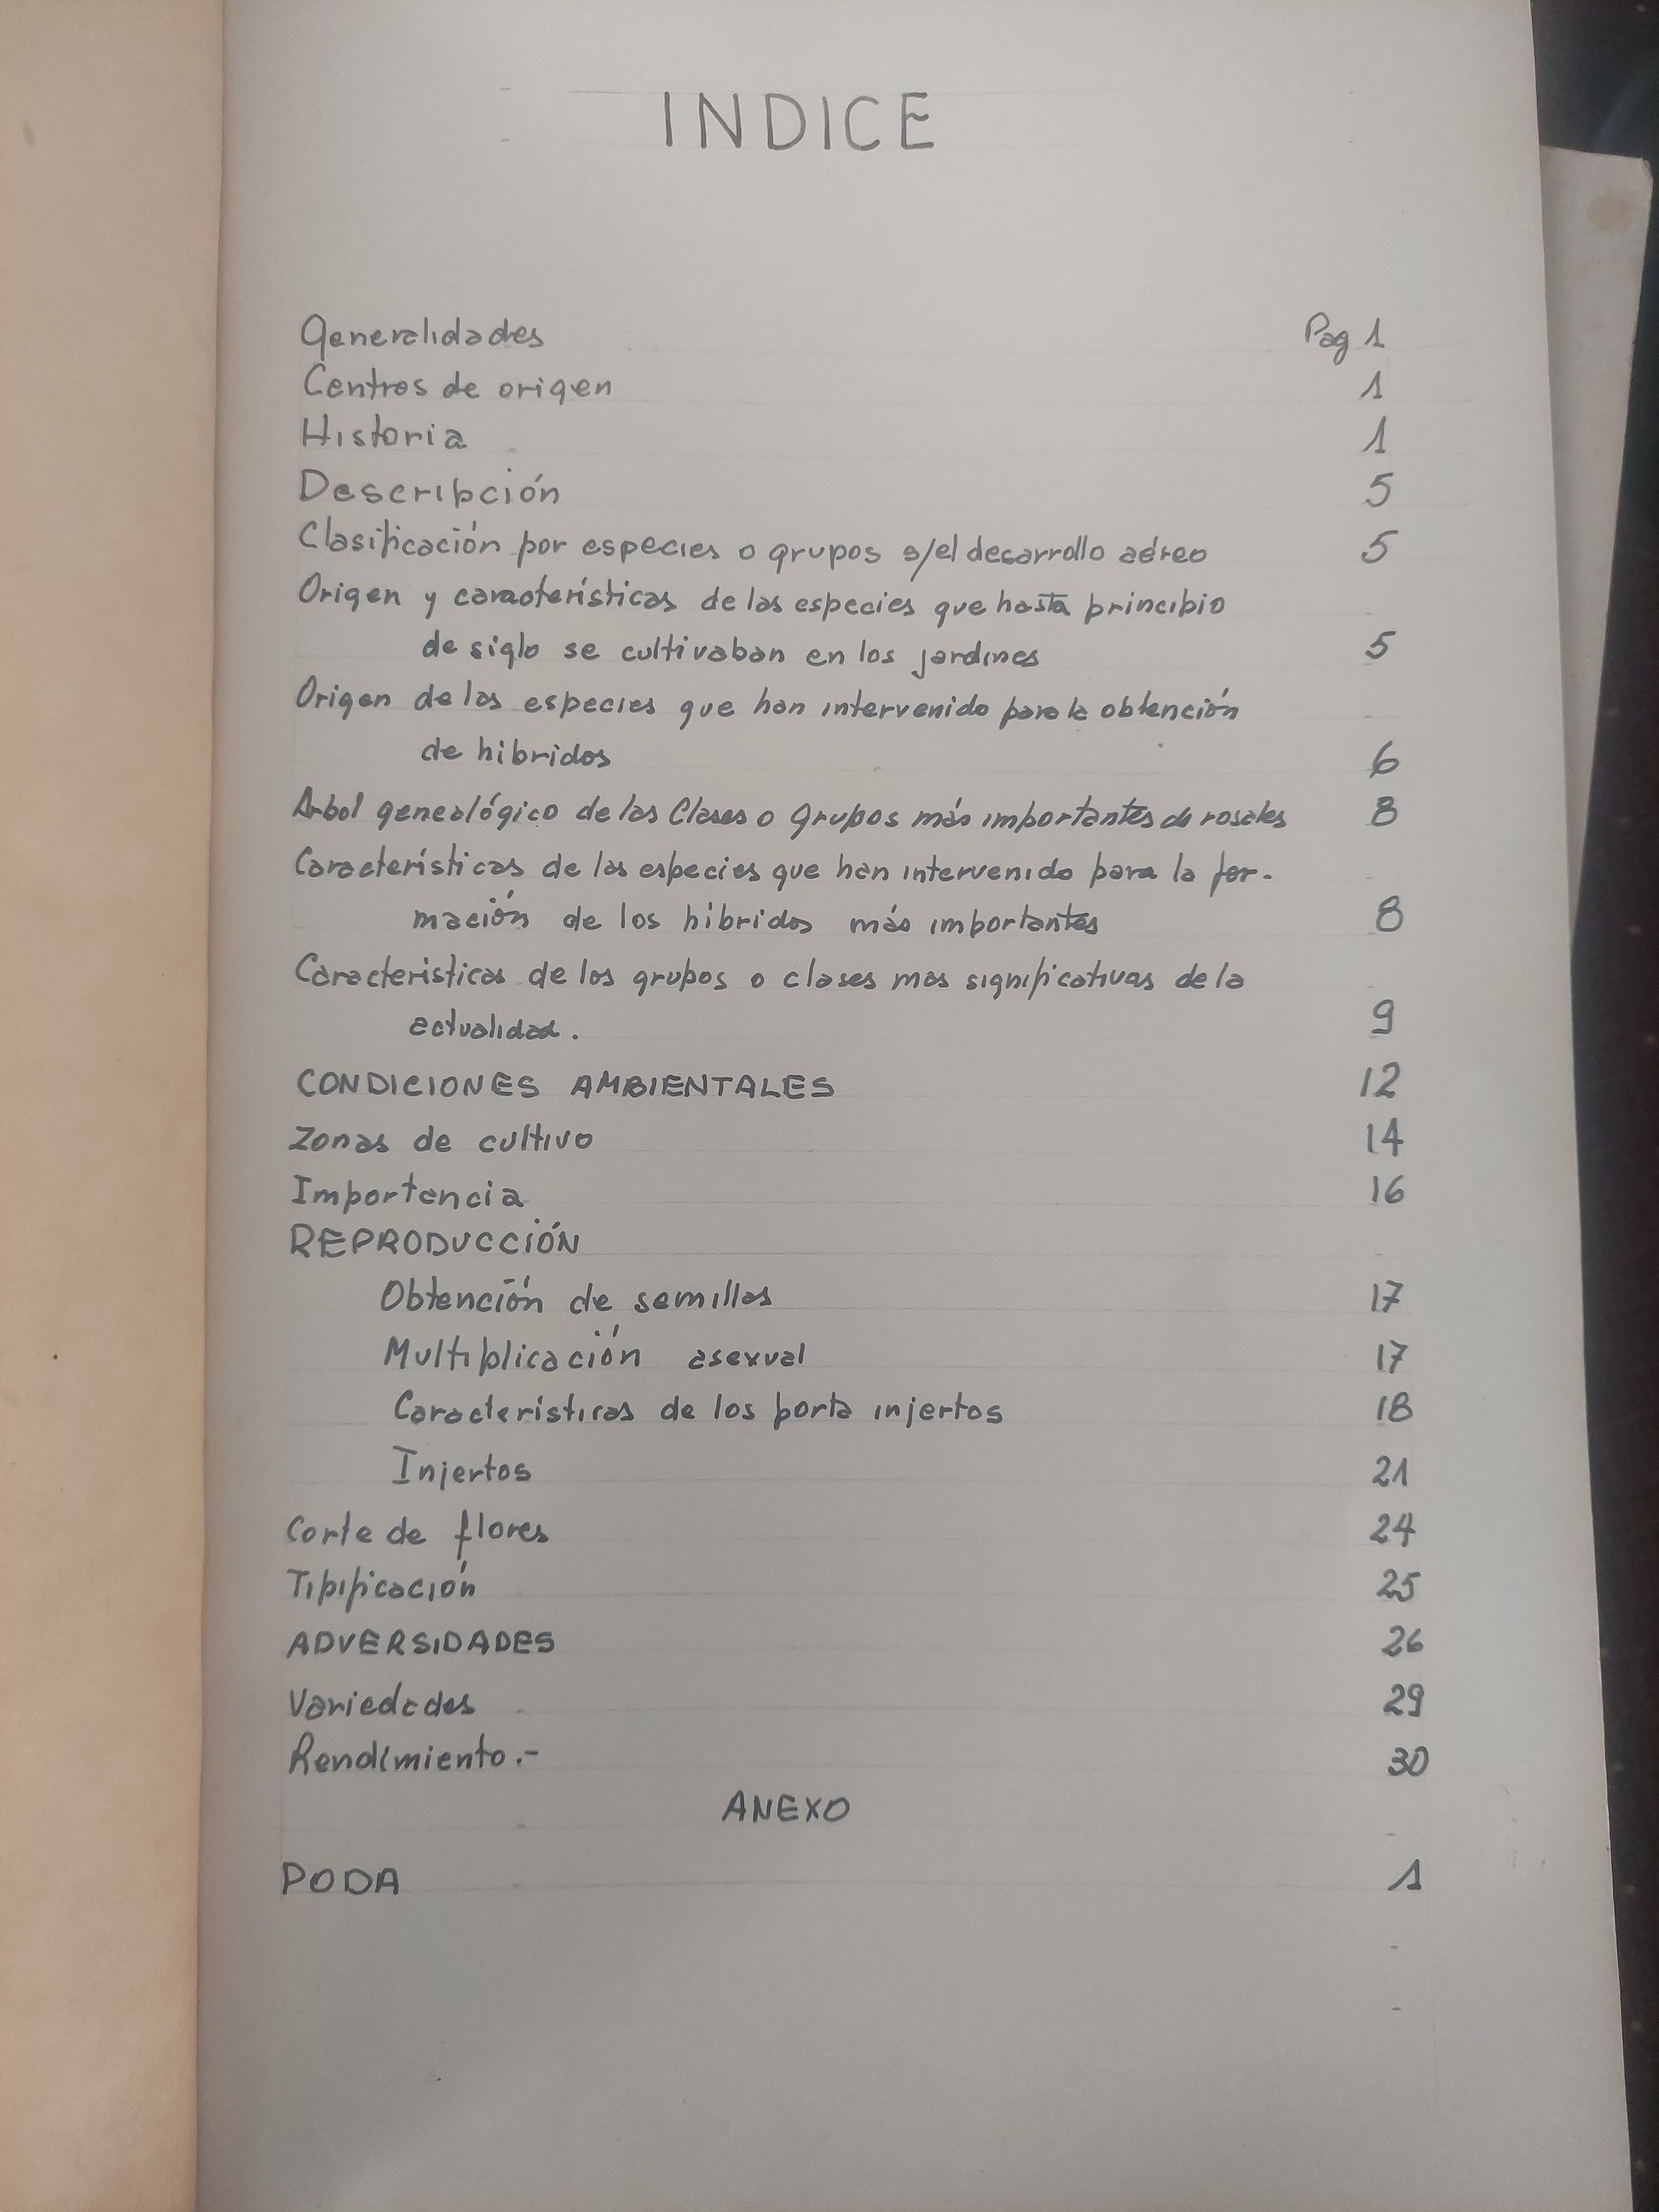 INDICE
Generalidades Pag 1
Centros de origen 1
Historia 1
Descripción 5
Clasificación por especies o grupos s/el desarrollo aéreo 5
Origen y características de las especies que hasta principio
de siglo se cultivaban en los jardines 5
Origen de las especies que han intervenido para la obtención
de hibridos 6
Arbol genealógico de las Clases o grupos más importantes de rosales 8
Características de las especies que han intervenido para la for-
mación de los híbridos más importantes 8
Caracteristicas de los grupos o clases mas significativas de la
actualidad. 9
CONDICIONES AMBIENTALES 12
Zonas de cultivo 14
Importancia 16
REPRODUCCIÓN
Obtención de semillas 17
Multiplicación asexual 17
Características de los porta injertos 18
Injertos 21
Corte de flores 24
Tipificación 25
ADVERSIDADES 26
Variedades 29
Rendimiento.- 30
ANEXO
PODA 1